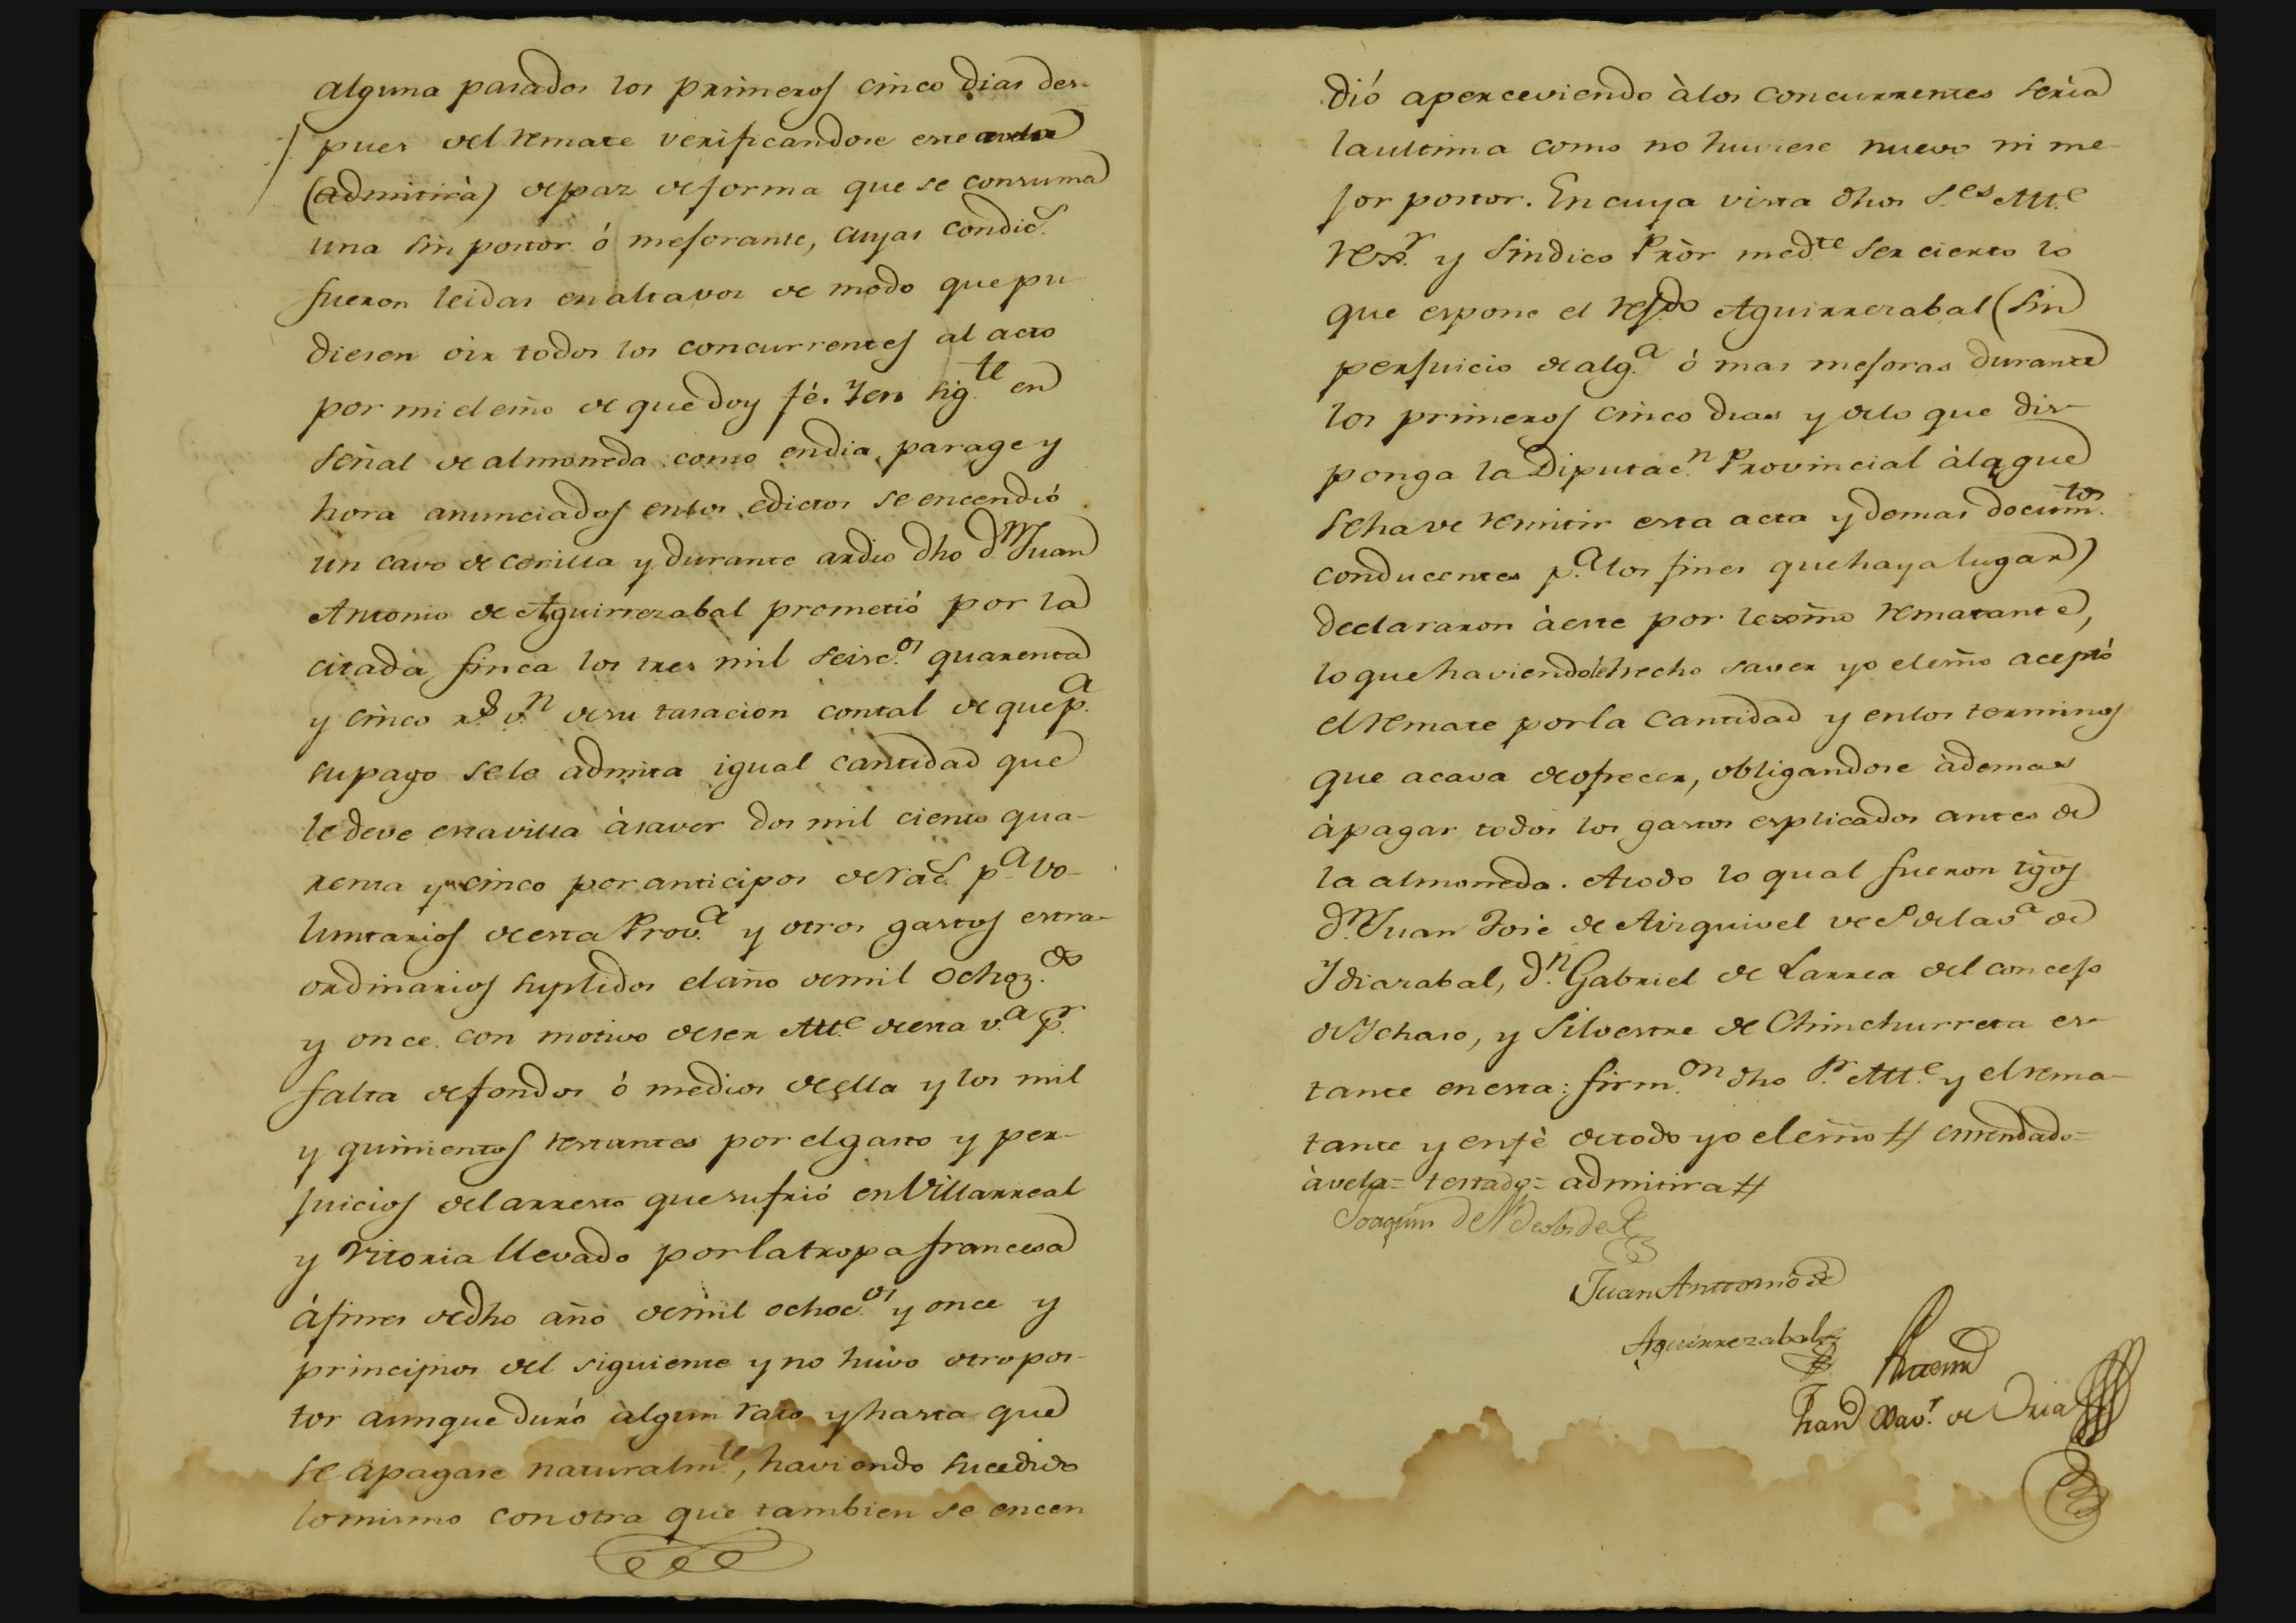 alguna pasados los primeros cinco dias des-
pues del remate verificandose este avela
(admitirà) depaz deforma que se consuma
una sin postor ó mejorante, cuyas condic.s
fueron leidas en altavoz de modo que pu-
diesen oir todos los concurrentes al acto
por mi el esño de que doy fé. Y en sig.te en
señal de almoneda como endia, parage y
hora anunciados enlos edictos se encendió
un cavo de cerilla y durante ardio dho d.n Juan
Antonio de Aguirrezabal prometió por la
citada finca los tres mil seisc.os quarenta
y cinco r.s v.n desu tasacion contal de que p.a
supago sele admita igual cantidad que
le deve estavilla àsaver dos mil ciento qua-
renta y cinco por anticipos de rac.s p.a vo-
luntarios de esta Prov.a y otros gastos estra-
ordinarios suplidos elaño demil ochoz.os
y once con motivo deser Alc.e deesta v.a p.r
falta defondos ó medios deella y los mil
y quinientos restantes por elgasto y per-
juicios delarresto que sufrió en Villarreal
y Vitoria llevado porlatropa francesa
àfines dedho año demil ochoc.os y once y
principios del siguiente y no huvo otro pos-
tor aunque duró algun rato y hasta que
se apagase naturalm.te, haviendo sucedido
lomismo con otra que tambien se encen
dió aperceviendo àlos concurrentes sería
laultima como no huviese nuevo ni me-
jor postor. En cuya vista dhos S.es Alc.e
Rex.r y Sindico Prör med.te ser cierto lo
que espone el refdo Aguirrezabal (sin
perjuicio de alg.a ó mas mejoras durante
los primeros cinco dias y delo que dis-
ponga la Diputac.n Provincial àlaque
sehave remitir esta acta y demas docum.tos
conducentes p.a los fines que haya lugar)
declararon àeste por lexmo rematante,
lo que haviendole hecho saver yo elesño aceptó
el remate porla cantidad y enlos terminos
que acava deofrecer, obligandose àdemas
àpagar todos los gastos esplicados antes de
la almoneda. Atodo lo qual fueron tgos
d.n Juan José de Aizquivel vec.o delav.a de
Ydiazabal, d.n Gabriel de Larrea del concejo
de Ychaso, y Silvestre de Chinchurreta es-
tante enesta: firm.on dho S.r Alc.e y el rema-
tante y enfè detodo yo elesño # enmendado=
àvela= testado= admitira #
Joaquin de
Juan Anttonio de
Aguirrezabal
Antemi
Fran.co Xav.r de Oria